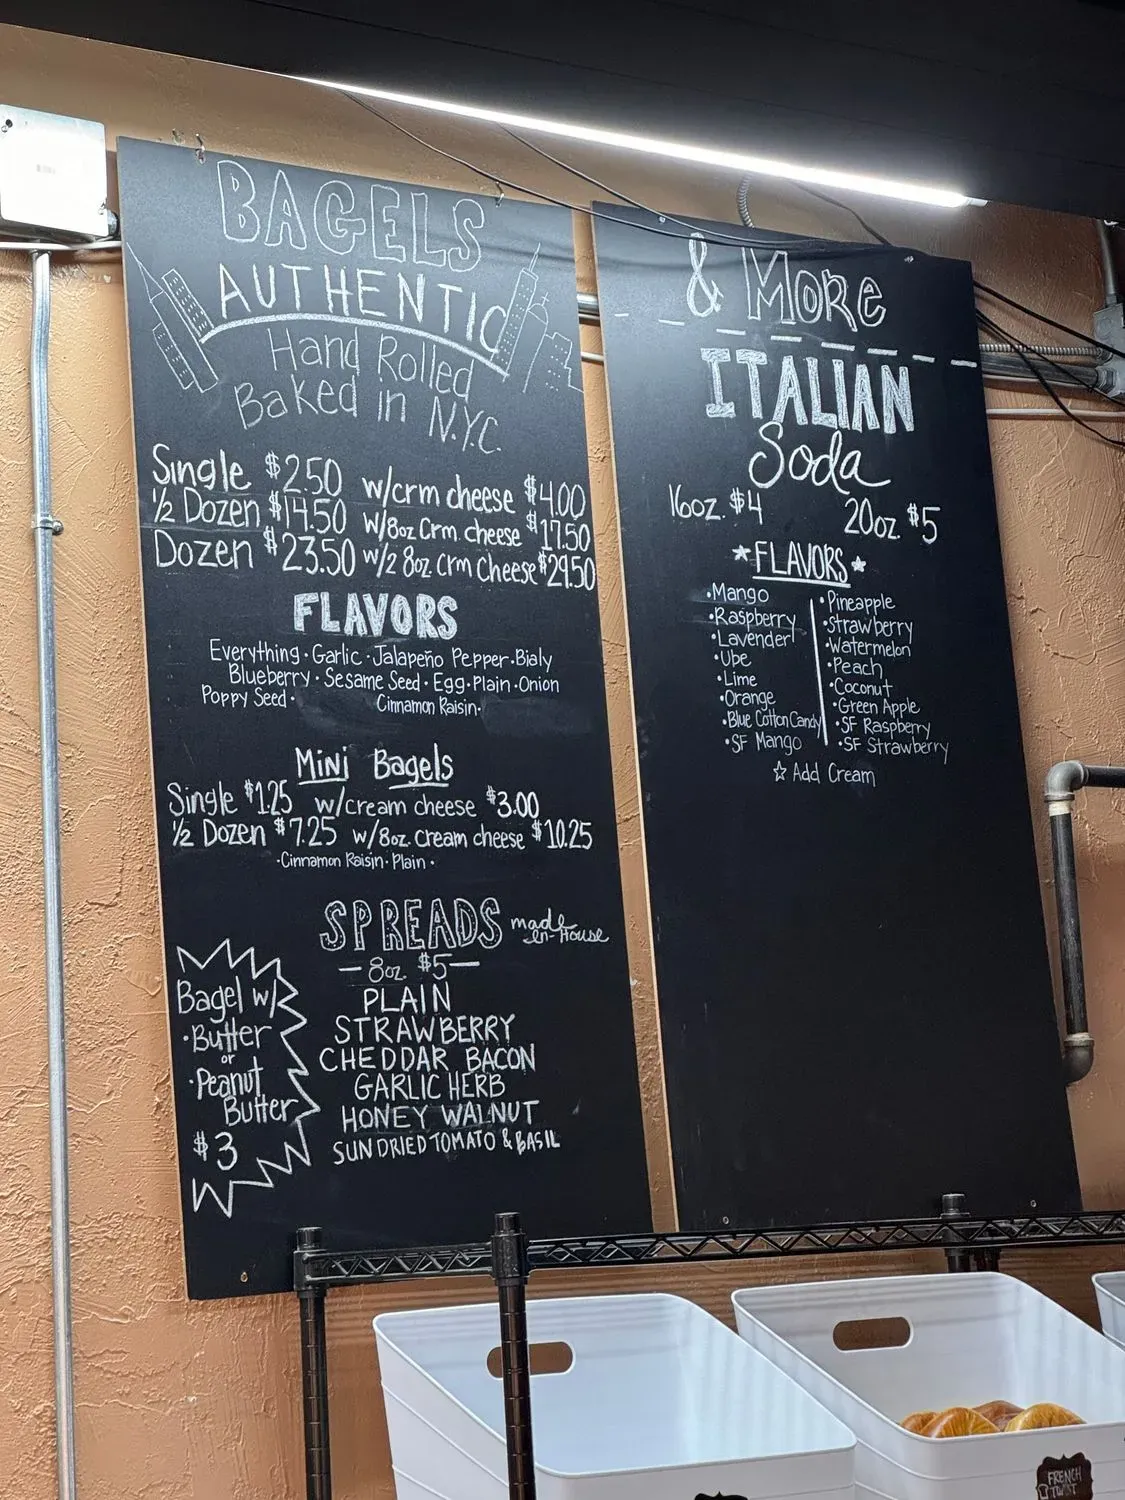 BAGELS
AUTHENTIC
Hand Rolled
Baked in N.Y.C.
Single $2.50 w/crm cheese $4.00
1/2 Dozen $14.50 w/8oz Crm cheese $17.50
Dozen $23.50 w/2 8oz. Crm Cheese $29.50
FLAVORS
Everything · Garlic · Jalapeño Pepper · Bialy
Blueberry · Sesame Seed · Egg · Plain · Onion
Poppy Seed · Cinnamon Raisin ·
Mini Bagels
Single $1.25 w/cream cheese $3.00
1/2 Dozen $7.25 w/8oz. cream cheese $10.25
· Cinnamon Raisin · Plain ·
SPREADS made in-House
— 8oz. $5 —
PLAIN
STRAWBERRY
CHEDDAR BACON
GARLIC HERB
HONEY WALNUT
SUNDRIED TOMATO & BASIL
Bagel w/
· Butter
or
· Peanut
Butter
$3
& MORe
ITALIAN
Soda
16oz. $4 20oz. $5
★ FLAVORS ★
· Mango
· Raspberry
· Lavender
· Ube
· Lime
· Orange
· Blue Cotton Candy
· SF Mango
· Pineapple
· Strawberry
· Watermelon
· Peach
· Coconut
· Green Apple
· SF Raspberry
· SF Strawberry
☆ Add Cream
FRENCH
TWIST